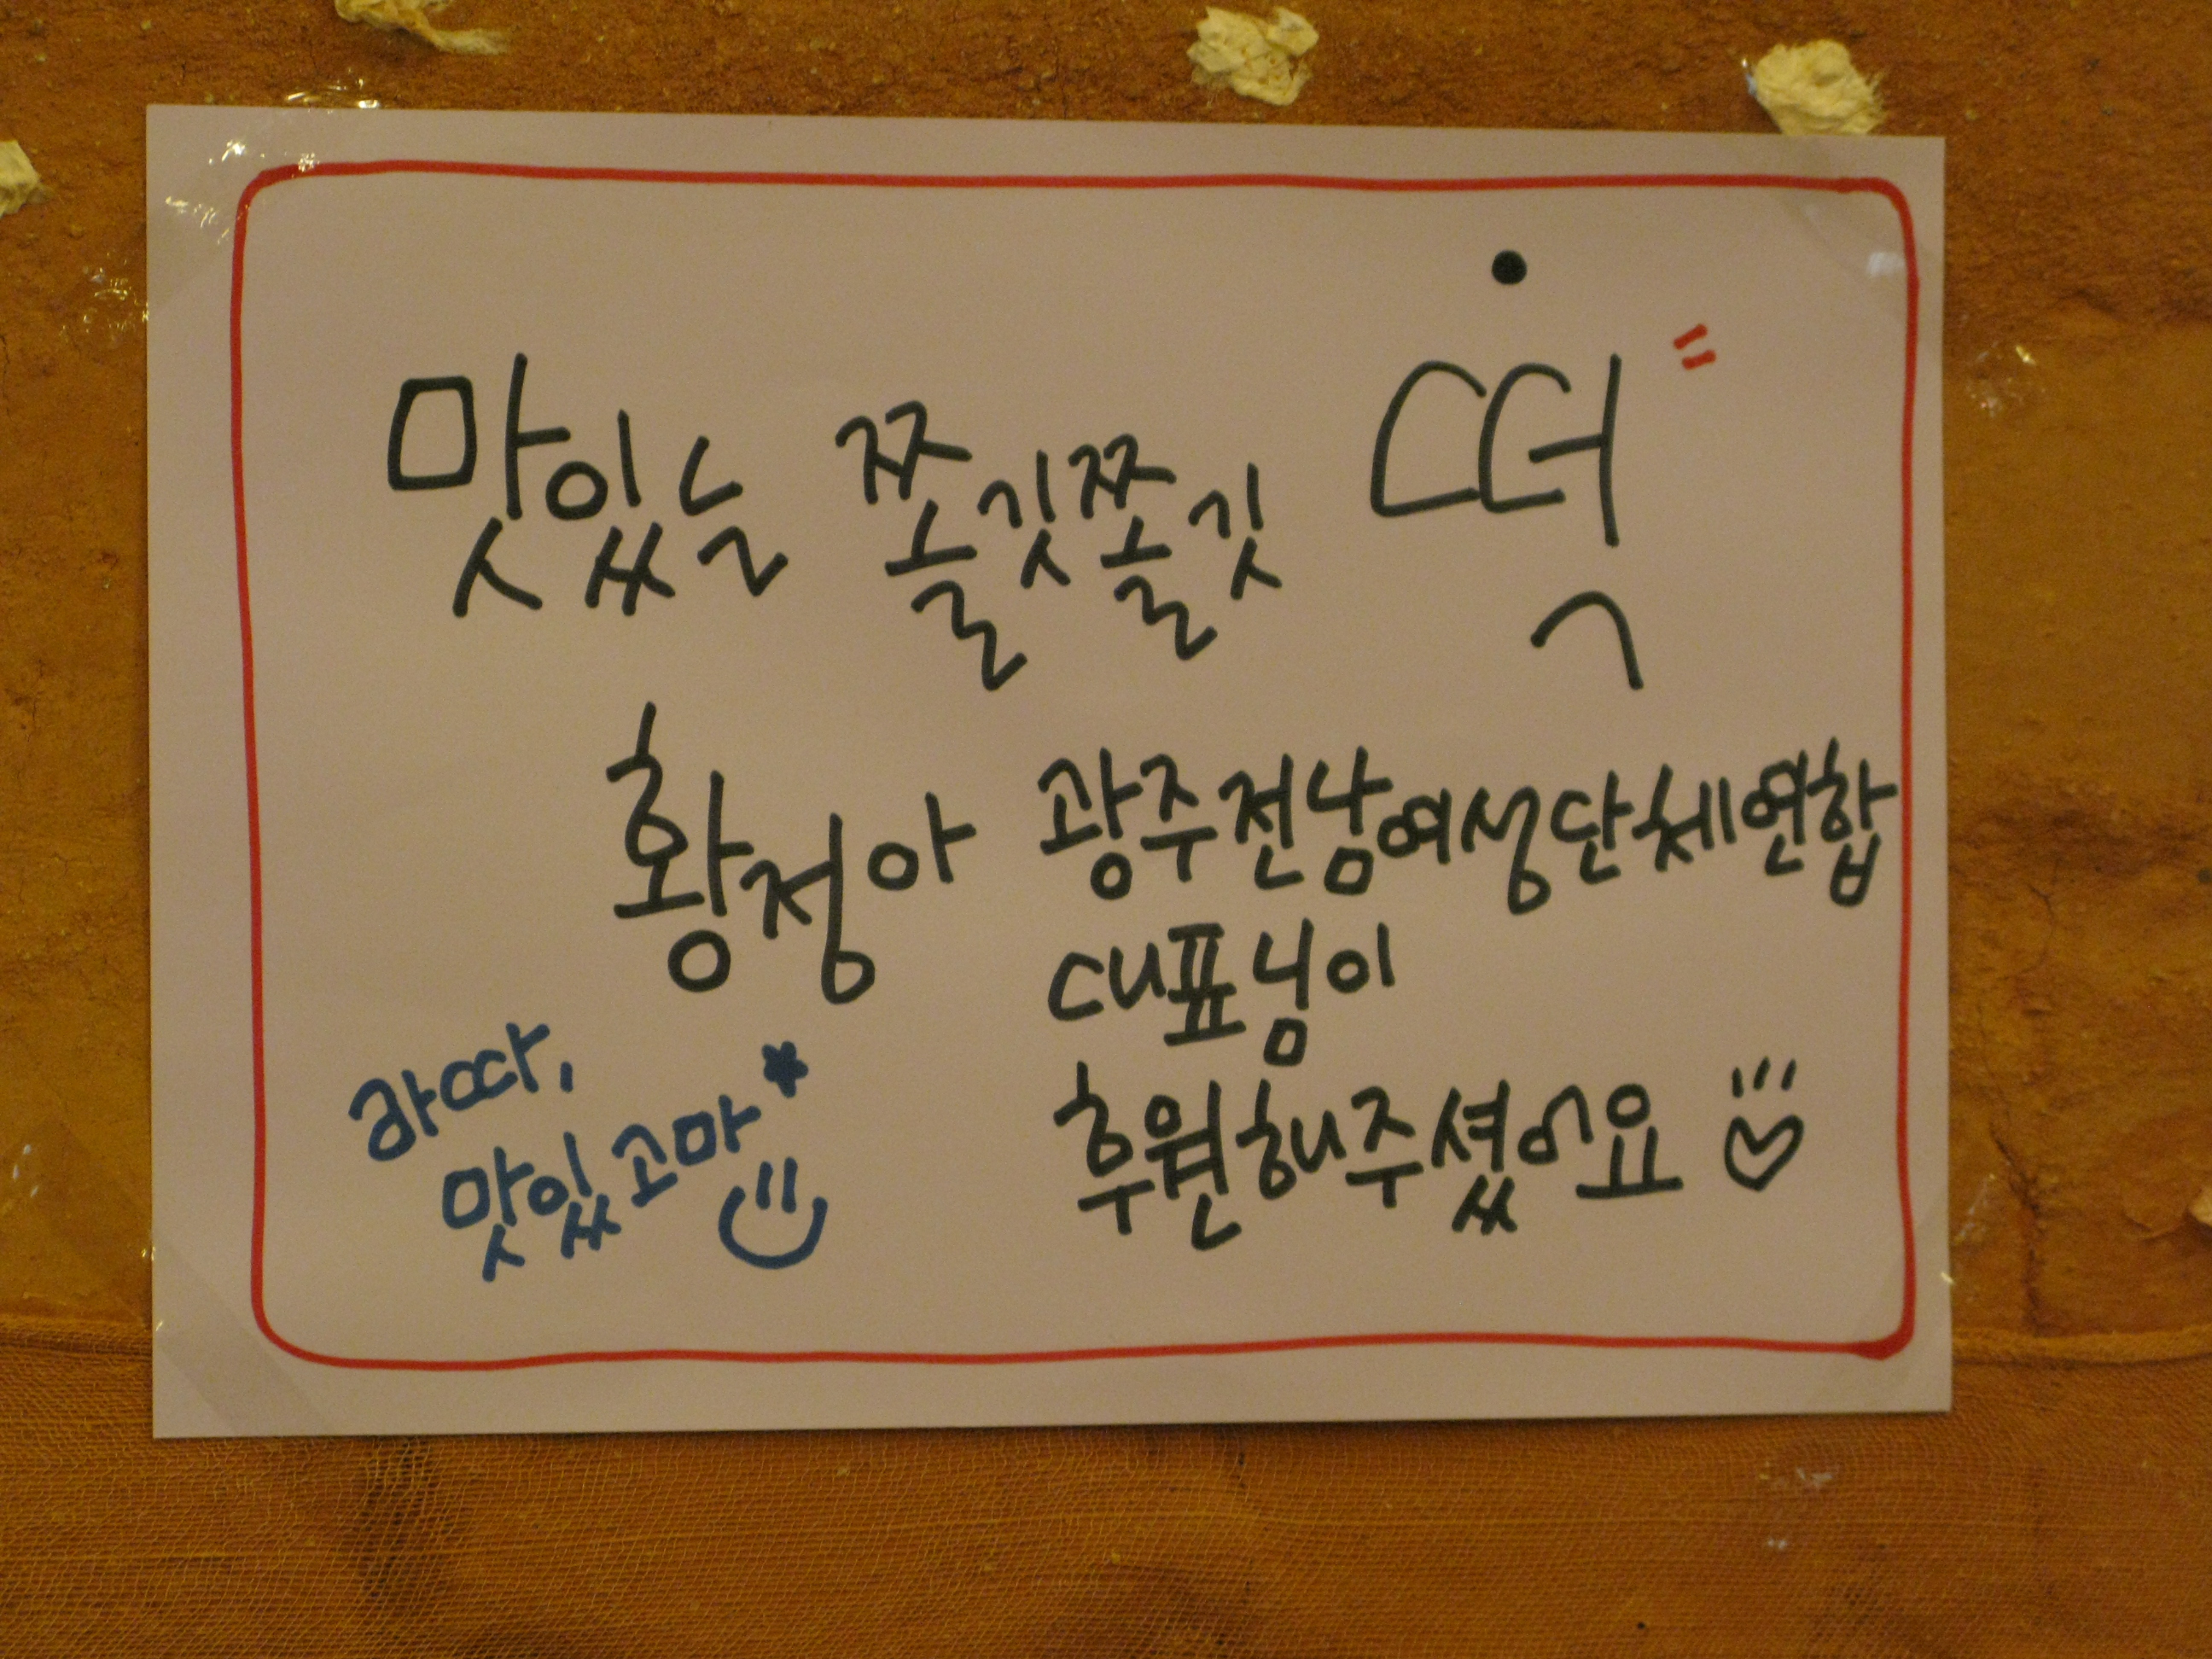 맛있는 쫄깃쫄깃 떡"
황정아 광주전남여성단체연합
대표님이
후원해주셨어요
라따,
맛있고마